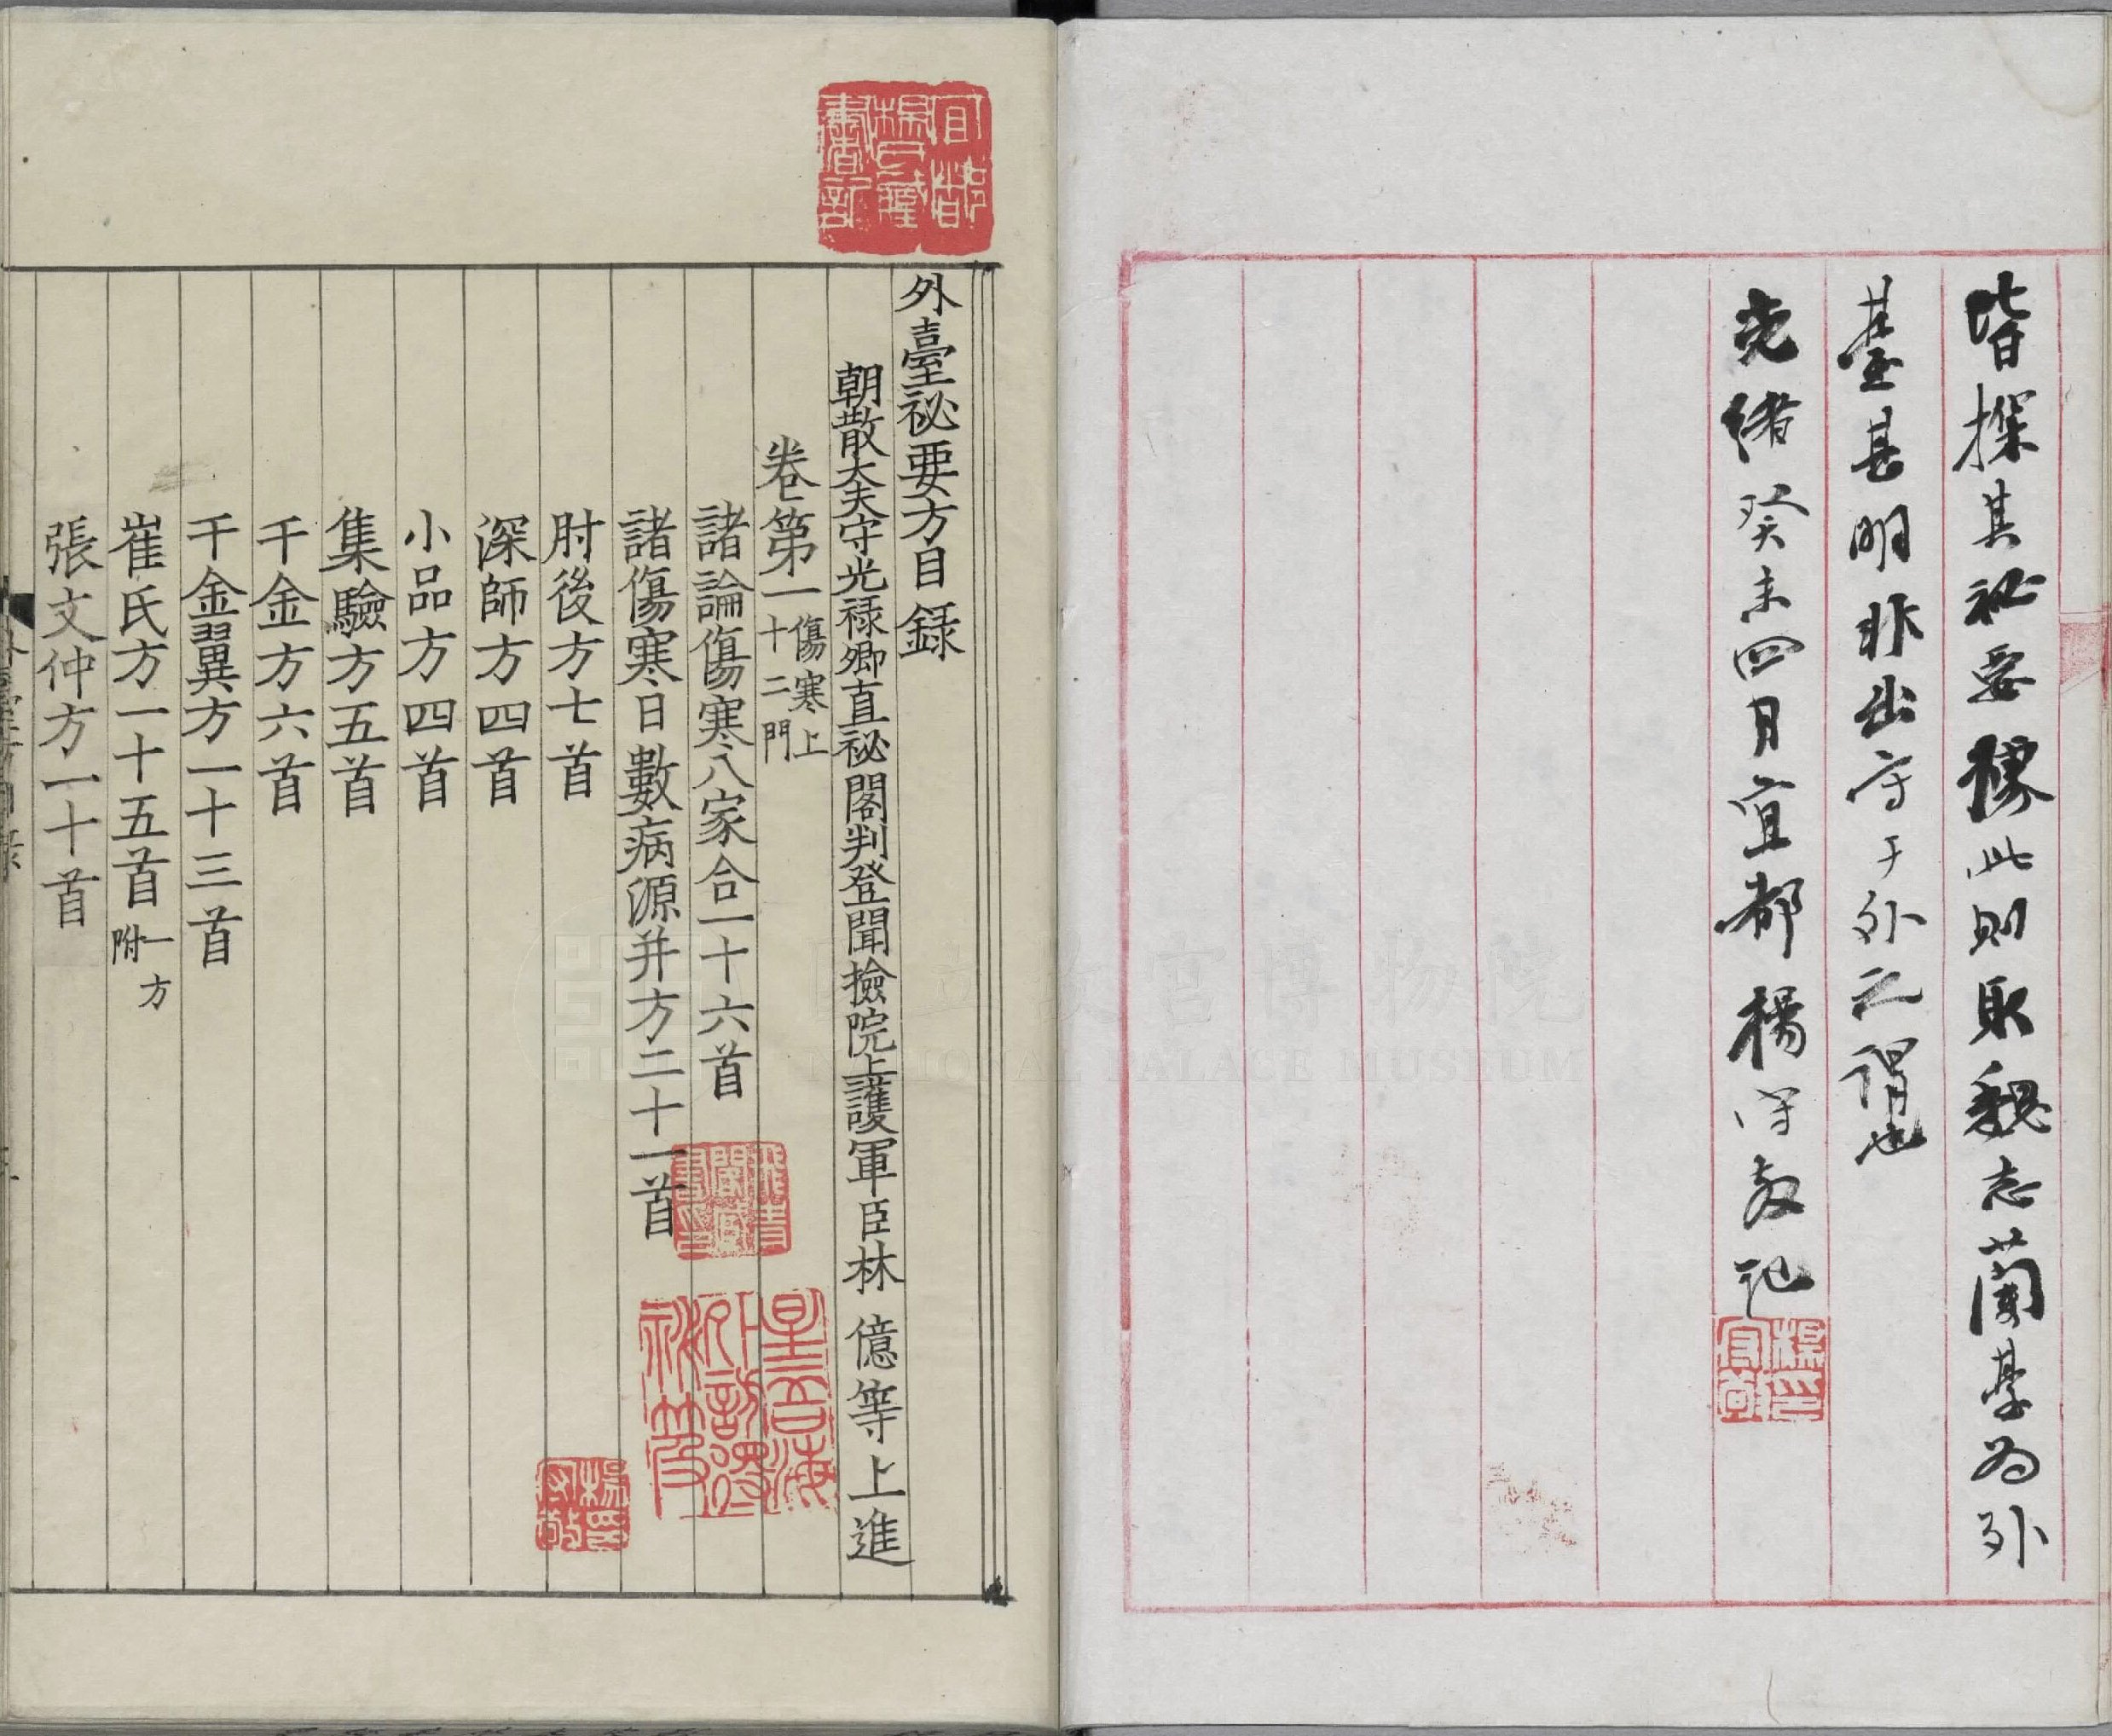 皆探其祕要據此則取魏志蘭臺為外
臺甚明非出守于外之謂也
光緒癸未四月宜都楊守敬記
楊印守敬
宜都楊氏藏書記
外臺祕要方目錄
朝散大夫守光祿卿直祕閣判登聞撿院上護軍臣林億等上進
卷第一傷寒上十二門
諸論傷寒八家合一十六首
諸傷寒日數病源并方二十一首
肘後方七首
深師方四首
小品方四首
集驗方五首
千金方六首
千金翼方一十三首
崔氏方一十五首一方附
張文仲方一十首
飛青閣藏書印
星吾海外訪得秘笈
楊印守敬
國立故宮博物院
NATIONAL PALACE MUSEUM